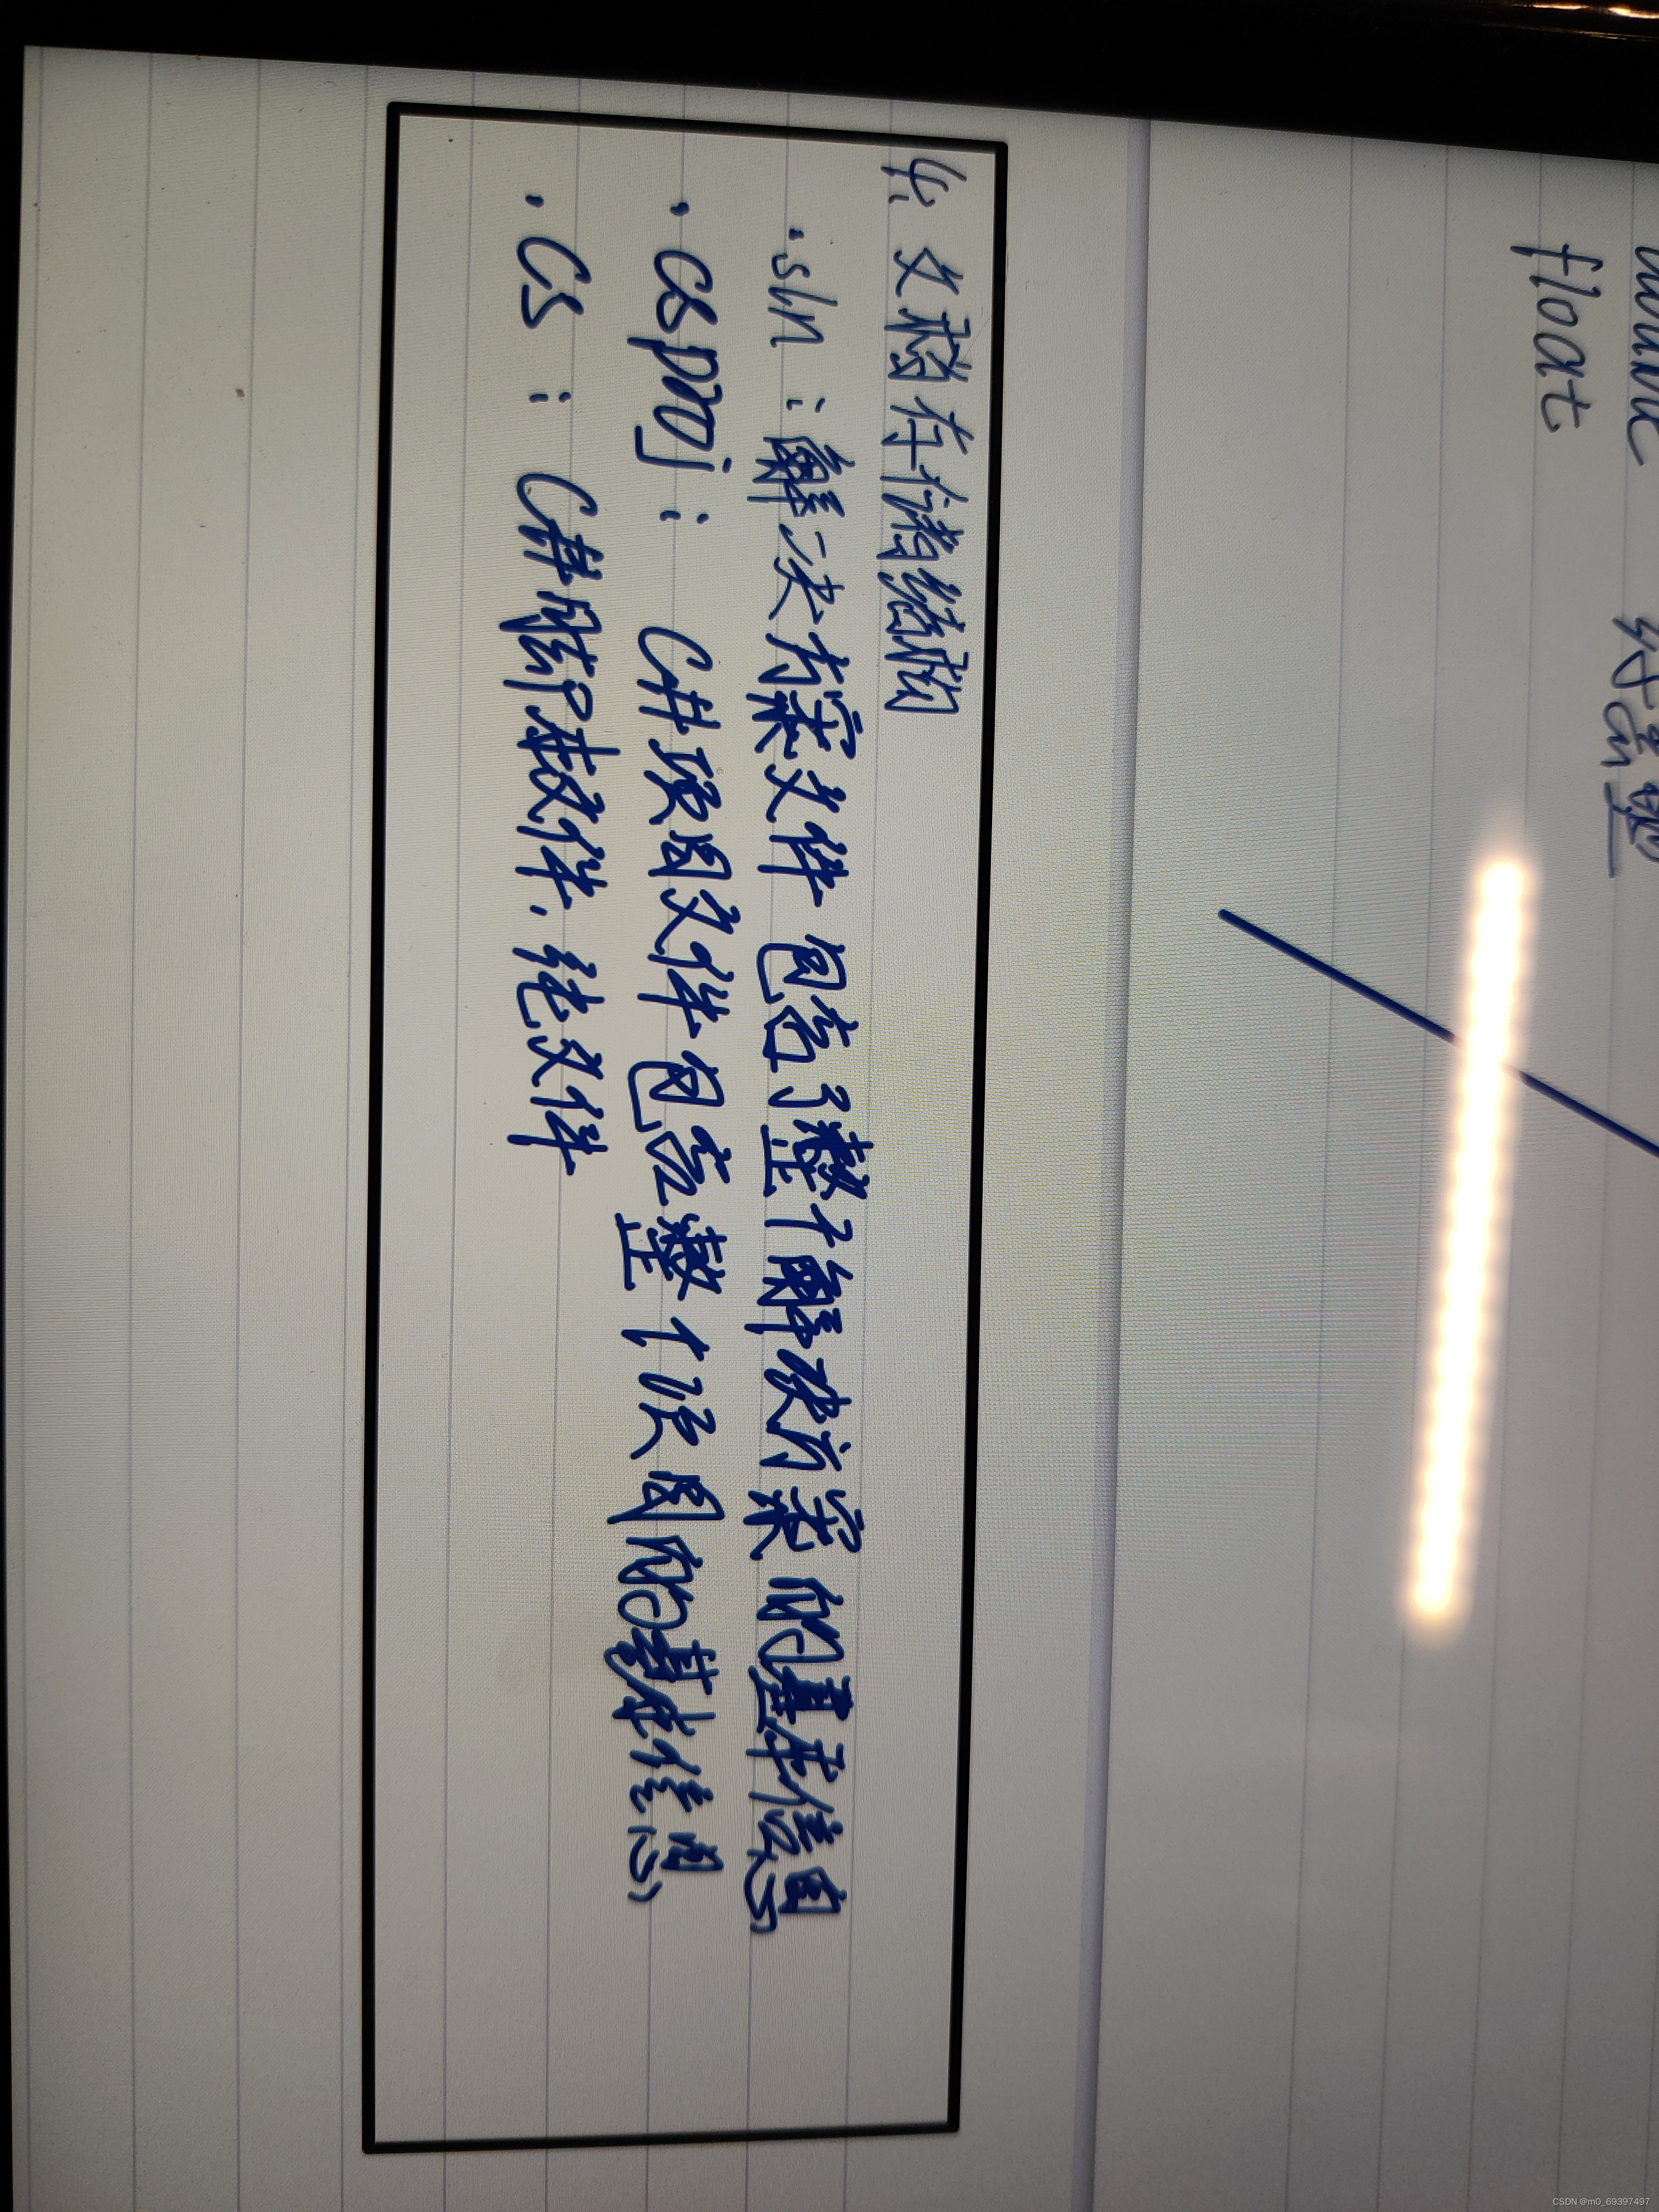 float
4. 文稿存储结构
.sln：解决方案文件 包含了整个解决方案的基本信息
.csproj： C#项目文件包含整个项目的基本信息
.cs： C#脚本文件.纯文件
CSDN @m0_69397497